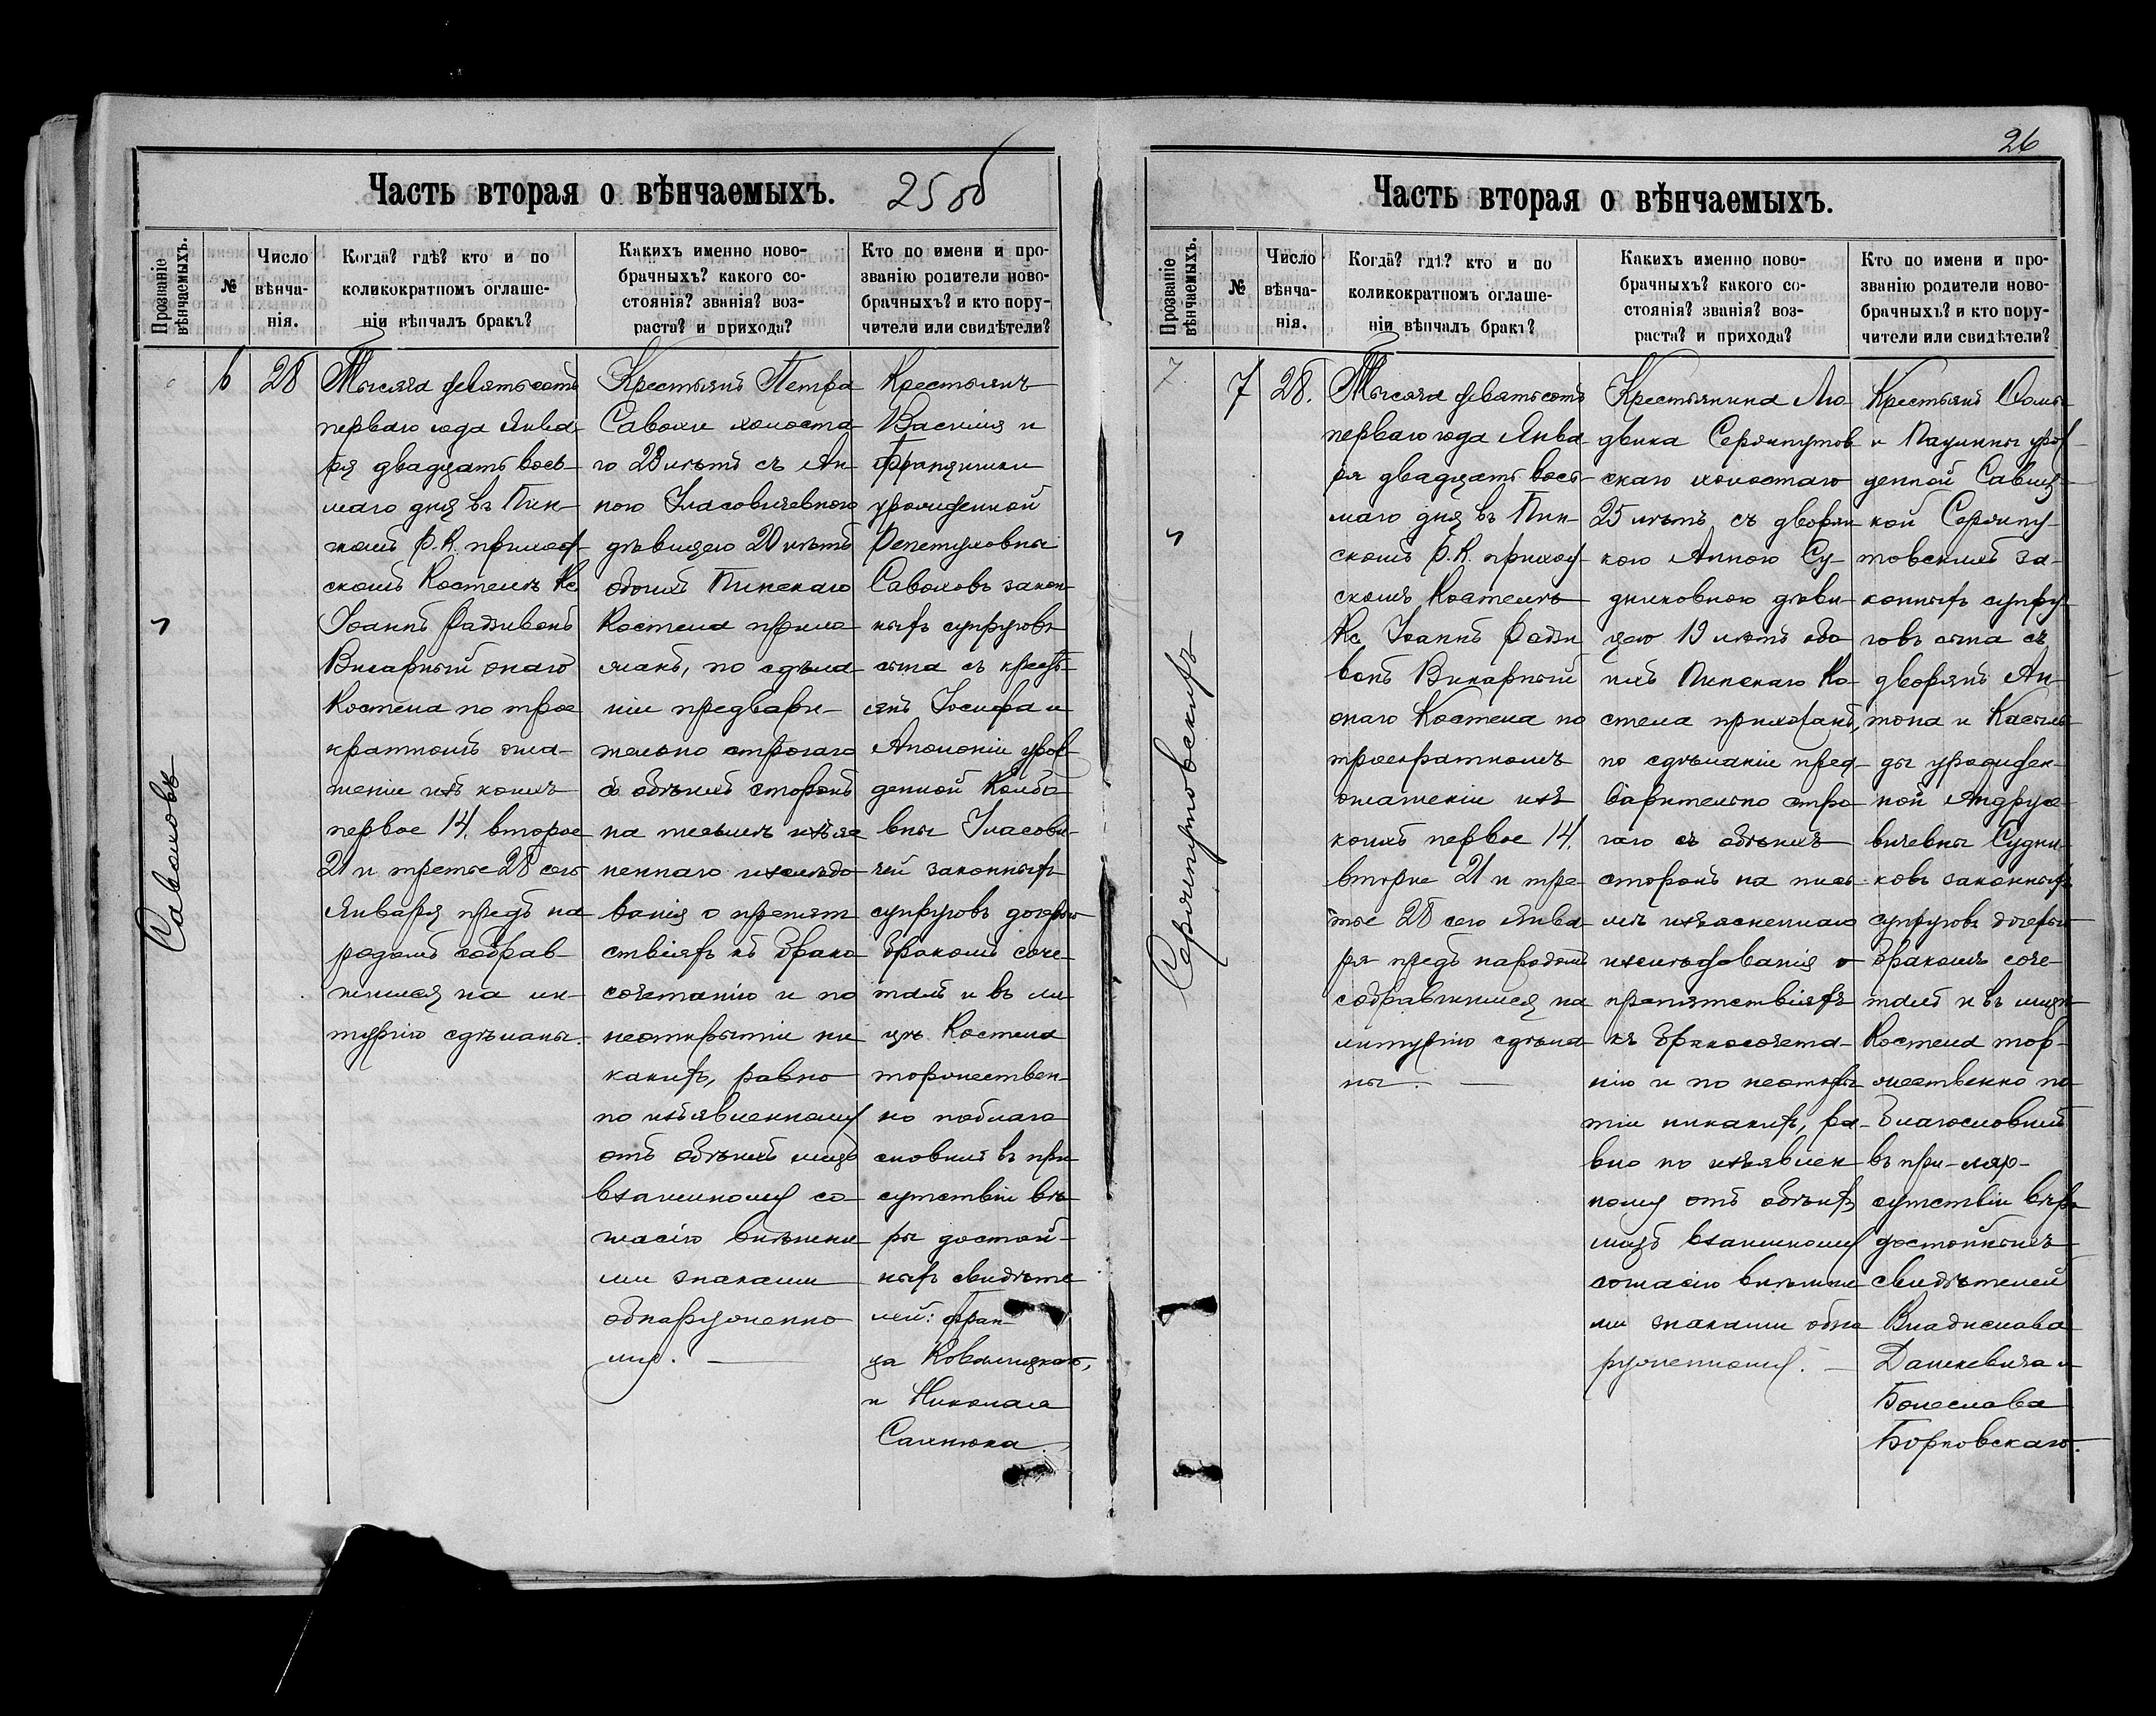 Часть вторая о вѣнчаемыхъ.
25 об
Прозваніе вѣнчаемыхъ.
№
Число вѣнча-
нія.
Когда? гдѣ? кто и по
коликократномъ оглаше-
ніи вѣнчалъ бракъ?
Какихъ именно ново-
брачныхъ? какого со-
стоянія? званія? воз-
раста? и прихода?
Кто по имени и про-
званію родители ново-
брачныхъ? и кто пору-
чители или свидѣтели?
6
28
Тысяча девятьсотъ
перваго года Янва
ря двадцать вось-
маго дня въ Пин-
скомъ Р. К. приход-
скомъ Костелѣ Кс
Іоаннъ Радзивонъ
Викарный онаго
Костела по трое
кратномъ огла-
шеніи изъ коихъ
первое 14, второе
21 и третье 28 сего
Января предъ на
родомъ собрав-
шимся на ли-
тургію сдѣланы.
Крестьянъ Петра
холоста
го 23 лѣтъ съ Ан-
ною
дѣвицею 20 лѣтъ
обоихъ Пинскаго
Костела прихо
жанъ, по сдѣла
ніи предвари-
тельно строгаго
съ обѣихъ сторонъ
на письмѣ изъяс
неннаго изслѣдо
ванія о препят
ствіяхъ къ брако
сочетанію и по
неоткрытіи ни
какихъ, равно
по изъявленному
отъ обѣихъ лицъ
взаимному со-
гласію внѣшни
ми знаками
обнаруженно
му.
Крестьянъ
Василія и
Францишки
урожденной
закон-
ныхъ супруговъ
сына съ кресть-
янъ Іосифа и
Апполоніи урож-
денной
законныхъ
супруговъ дочерью
бракомъ соче-
талъ и въ ли-
цѣ Костела
торжествен-
но поблаго
словилъ въ при
сутствіи вѣ-
ры достой-
ныхъ свидѣте
лей: Фран-
ца
и Николая
26
Часть вторая о вѣнчаемыхъ.
Прозваніе вѣнчаемыхъ.
№
Число вѣнча-
нія.
Когда? гдѣ? кто и по
коликократномъ оглаше-
ніи вѣнчалъ бракъ?
Какихъ именно ново-
брачныхъ? какого со-
стоянія? званія? воз-
раста? и прихода?
Кто по имени и про-
званію родители ново-
брачныхъ? и кто пору-
чители или свидѣтели?
7.
7
28.
Тысяча девятьсотъ
перваго года Янва
ря двадцать вось-
маго дня въ Пин-
скомъ Р. К. приход-
скомъ Костелѣ
Кс Іоаннъ Радзи
вонъ Викарный
онаго Костела по
троекратномъ
оглашеніи изъ
коихъ первое 14,
второе 21 и тре
тье 28 сего Янва
ря предъ народомъ
собравшимся на
литургію сдѣла
ны.
Крестьянина Лю
двика
скаго холостаго
25 лѣтъ съ дворян
кою Анною Су-
дниковною дѣви-
цею 19 лѣтъ обо
ихъ Пинскаго Ко-
стела прихожанъ,
по сдѣланіи пред-
варительно стро
гаго съ обѣихъ
сторонъ на пись
мѣ изъясненнаго
изслѣдованія о
препятствіяхъ
къ бракосочета-
нію и по неоткры
тіи никакихъ, ра-
вно по изъявлен
ному отъ обѣихъ
лицъ взаимному
согласію внѣшни
ми знаками обна
руженному.
Крестьянъ Фомы
и Паулины урож
денной Савиц-
кой
за-
конныхъ супру
говъ сына съ
дворянъ Ан-
тона и
урожден-
ной Андруке-
вичевны Судни-
ковъ законныхъ
супруговъ дочерью
бракомъ соче-
талъ и въ лицѣ
Костела тор-
жественно по
благословилъ
въ при-
сутствіи вѣры
достойныхъ
свидѣтелей
Владислава
Дашкевича и
Болеслава
Борковскаго.